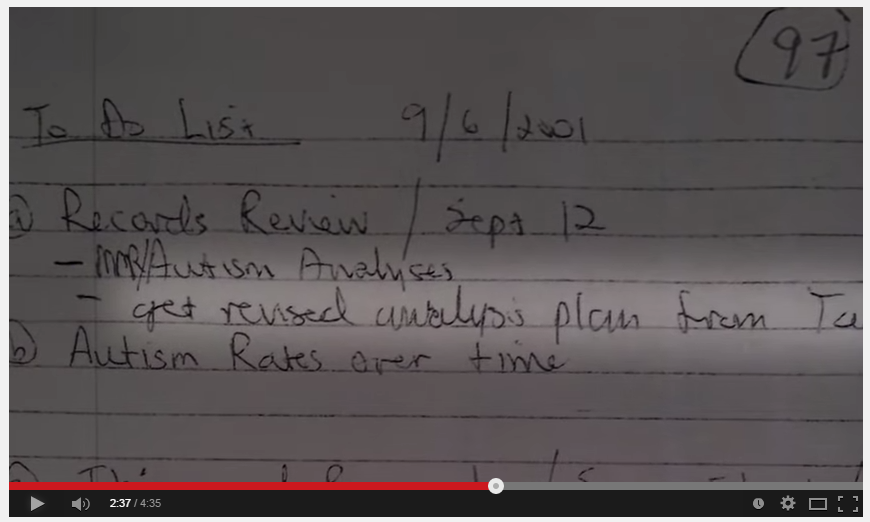 97
To Do List 9/6/2001
a) Records Review / Sept 12
- MMR/Autism Analyses
- get revised analysis plan from Ta
b) Autism Rates over time
2:37 / 4:35